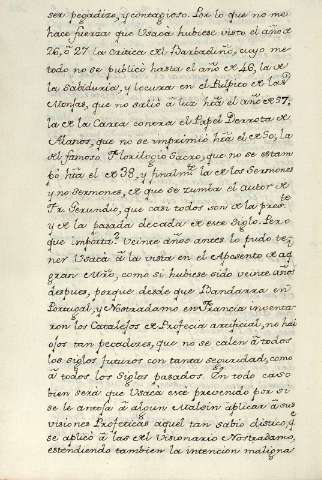 ser pegadizo, y contagioso. Por lo que no me
hace fuerza que Usaca hubiese visto el año de
26, ó 27 la Critica del Barbadiño, cuyo me-
todo no se publicó hasta el año de 46, la de
la Sabiduria, y locura en el Pulpito de las
Monjas, que no salió á luz hta el año de 57,
la de la Carta contra el Papel Derrota de
Alanos, que no se imprimió hta el de 50; la
del famoso Florilogio Sacro, que no se estam-
pó hta el de 38, y finalmte la de los Sermones
y no Sermones, de que se zumba el autor de
Fr. Gerundio, que casi todos son de la preste
y de la pasada decada de este Siglo. Pero
que importa? Veinte años antes lo pudo te-
ner Usaca á la vista en el Aposento de aql
gran Mro, como si hubiese sido veinte años
despues, porque desde que Bandarra en
Portugal, y Nostradamo en Francia inventa-
ron los Catalejos de Profecia artificial, no hai
ojos tan pecadores, que no se calen á todos
los siglos futuros con tanta seguridad, como
á todos los Siglos pasados. En todo caso
bien será que Usacá esté prevenido por si
se le antoja á algun Malsin aplicar á sus
visiones Profeticas aquel tan sabio distico, qe
se aplicó á las del Visionario Nostradamo,
estendiendo tambien la intencion maligna